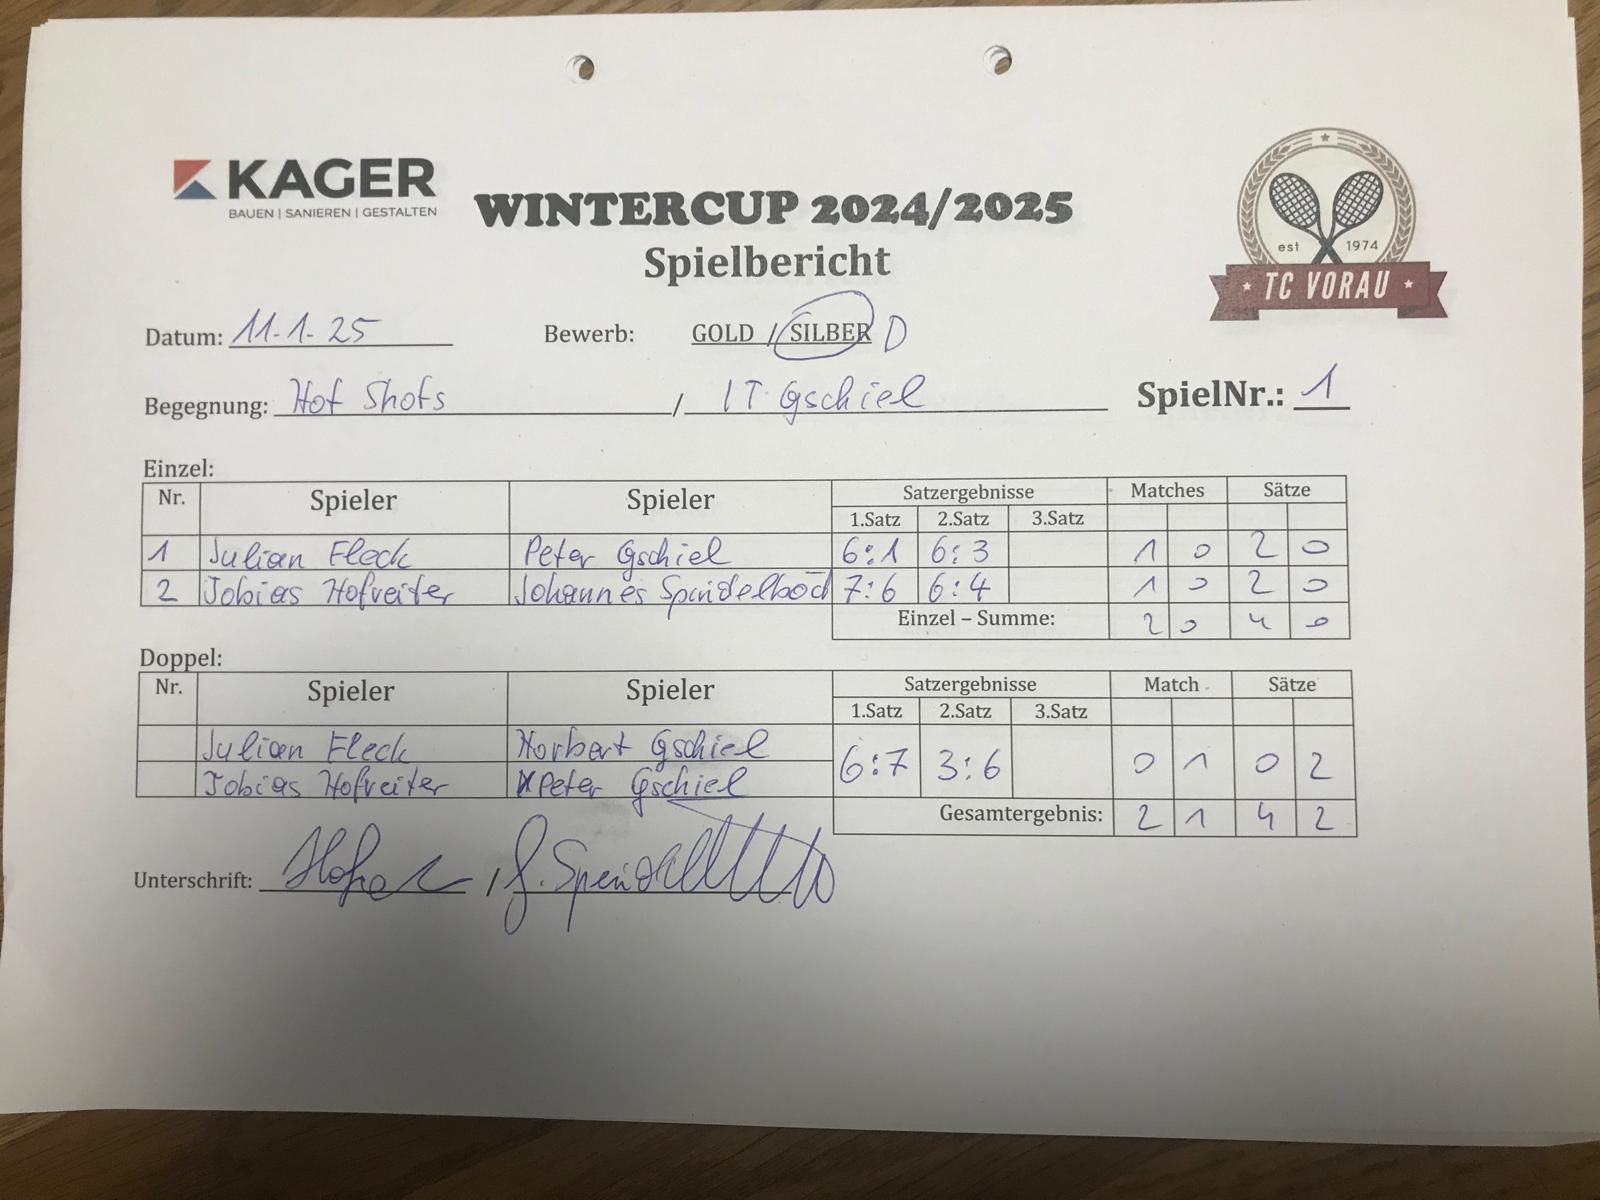 KAGER
BAUEN | SANIEREN | GESTALTEN
WINTERCUP 2024/2025
Spielbericht
est 1974
TC VORAU
Datum: 11.1.25 Bewerb: GOLD / SILBER D
Begegnung: Hot Shots / IT Gschiel SpielNr.: 1
Einzel:
Nr. Spieler Spieler Satzergebnisse Matches Sätze
1.Satz 2.Satz 3.Satz
1 Julian Fleck Peter Gschiel 6:1 6:3 1 0 2 0
2 Tobias Hofreiter Johannes Spindelböck 7:6 6:4 1 0 2 0
Einzel – Summe: 2 0 4 0
Doppel:
Nr. Spieler Spieler Satzergebnisse Match Sätze
1.Satz 2.Satz 3.Satz
Julian Fleck Norbert Gschiel 6:7 3:6 0 1 0 2
Tobias Hofreiter Peter Gschiel
Gesamtergebnis: 2 1 4 2
Unterschrift: /